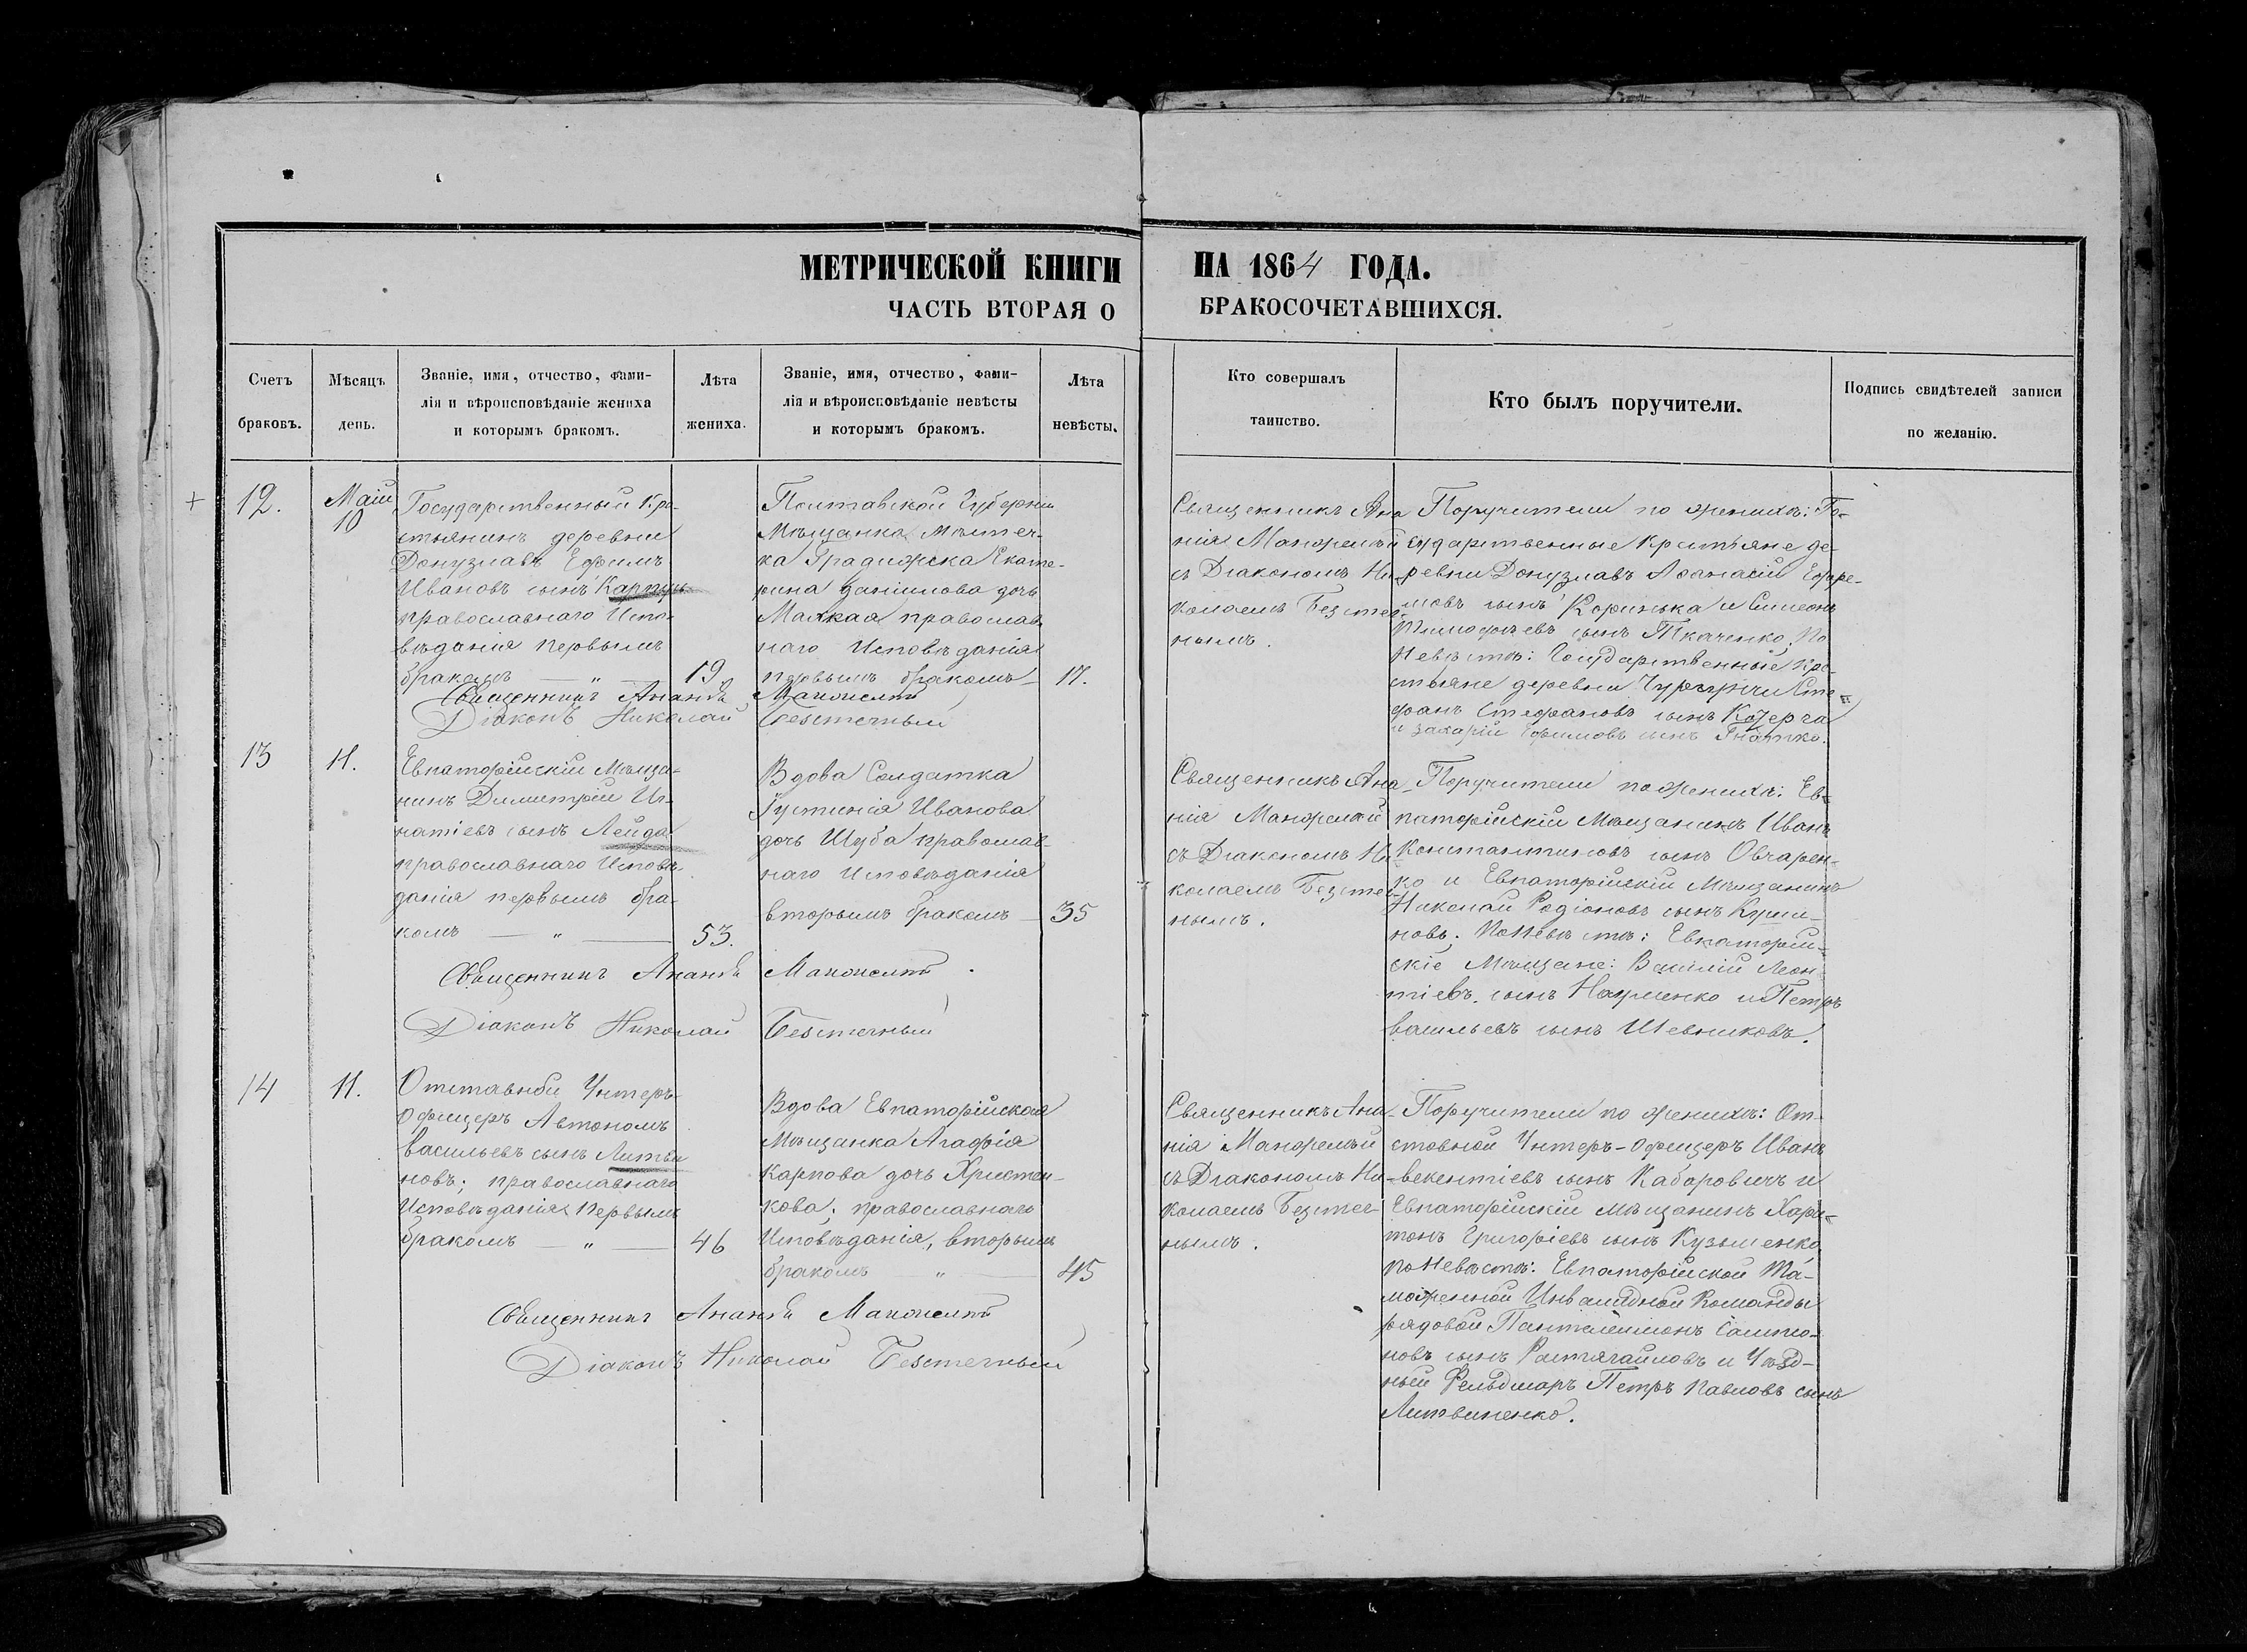 МЕТРИЧЕСКОЙ КНИГИ НА 1864 ГОДА.
ЧАСТЬ ВТОРАЯ О БРАКОСОЧЕТАВШИХСЯ.
Счетъ
браковъ.
Мѣсяцъ
день.
Званіе, имя, отчество, фами-
лія и вѣроисповѣданіе жениха
и которымъ бракомъ.
Лѣта
жениха.
Званіе, имя, отчество, фами-
лія и вѣроисповѣданіе невѣсты
и которымъ бракомъ.
Лѣта
невѣсты.
Кто совершалъ
таинство.
Кто былъ поручители.
Подпись свидѣтелей записи
по желанію.
12.
Маій
10
Государственный Кре-
стьянинъ деревни
Донузлавъ Ефимъ
Ивановъ сынъ
православнаго Испо-
вѣданія первымъ
бракомъ — „ —
19
Полтавской Губерніи
Мѣщанка Мѣстеч-
ка Градижска Екате-
рина Даніилова дочь
Малкая православ-
наго Исповѣданія
первымъ бракомъ —
17.
Священникъ Ана-
нія
съ Діакономъ Ни-
колаемъ Безтеч-
нымъ.
Поручители по женихѣ: Го-
сударственные Крестьяне де-
ревни Донузлавъ Аѳанасій Ефре-
мовъ сынъ Коринька и Симеонъ
Тимофѣевъ сынъ Ткаченко; По
Невѣстѣ: Государственные Кре-
стьяне деревни Сте-
фанъ Стефановъ сынъ
и Захарій Ефимовъ сынъ Гнатко.
Священникъ Ананія
Діаконъ Николай Безтечный
13
11.
Евпаторійскій Мѣща-
нинъ Димитрій Иг-
натіевъ сынъ Лейда
православнаго Исповѣ-
данія первымъ бра-
комъ — „ —
53.
Вдова Солдатка
Іустинія Иванова
дочь Шуба православ-
наго Исповѣданія
вторымъ бракомъ —
35
Священникъ Ана-
нія
съ Діакономъ Ни-
колаемъ Безтеч-
нымъ.
Поручители по женихѣ: Ев-
паторійскій Мѣщанинъ Иванъ
Константиновъ сынъ Овчарен-
ко и Евпаторійскій Мѣщанинъ
Николай Родіоновъ сынъ
новъ. По Невѣстѣ: Евпаторій-
скіе Мѣщане: Василій Леон-
тіевъ сынъ Науменко и Петръ
Васильевъ сынъ Шевниковъ.
Священникъ Ананія
Діаконъ Николай Безтечный
14
11.
Отставной Унтеръ-
Офицеръ Автономъ
Васильевъ сынъ Литви
новъ; православнаго
Исповѣданія первымъ
бракомъ — „ —
46
Вдова Евпаторійская
Мѣщанка Агафія
Карпова дочь Христен-
кова; православнаго
Исповѣданія, вторымъ
бракомъ „ —
45
Священникъ Ана-
нія
съ Діакономъ Ни-
колаемъ Безтеч-
нымъ.
Поручители по женихѣ: От-
ставной Унтеръ-Офицеръ Иванъ
Викентіевъ сынъ Кабаровичъ и
Евпаторійскій Мѣщанинъ Хари-
тонъ Григоріевъ сынъ Кузьменко
по Невѣстѣ: Евпаторійской Та-
моженной Инвалидной Команды
рядовой Пантелеимонъ
новъ сынъ Растягайловъ и Уѣзд-
ный Фельдшаръ Петръ Павловъ сынъ
Литвиненко.
Священникъ Ананія
Діаконъ Николай Безтечный